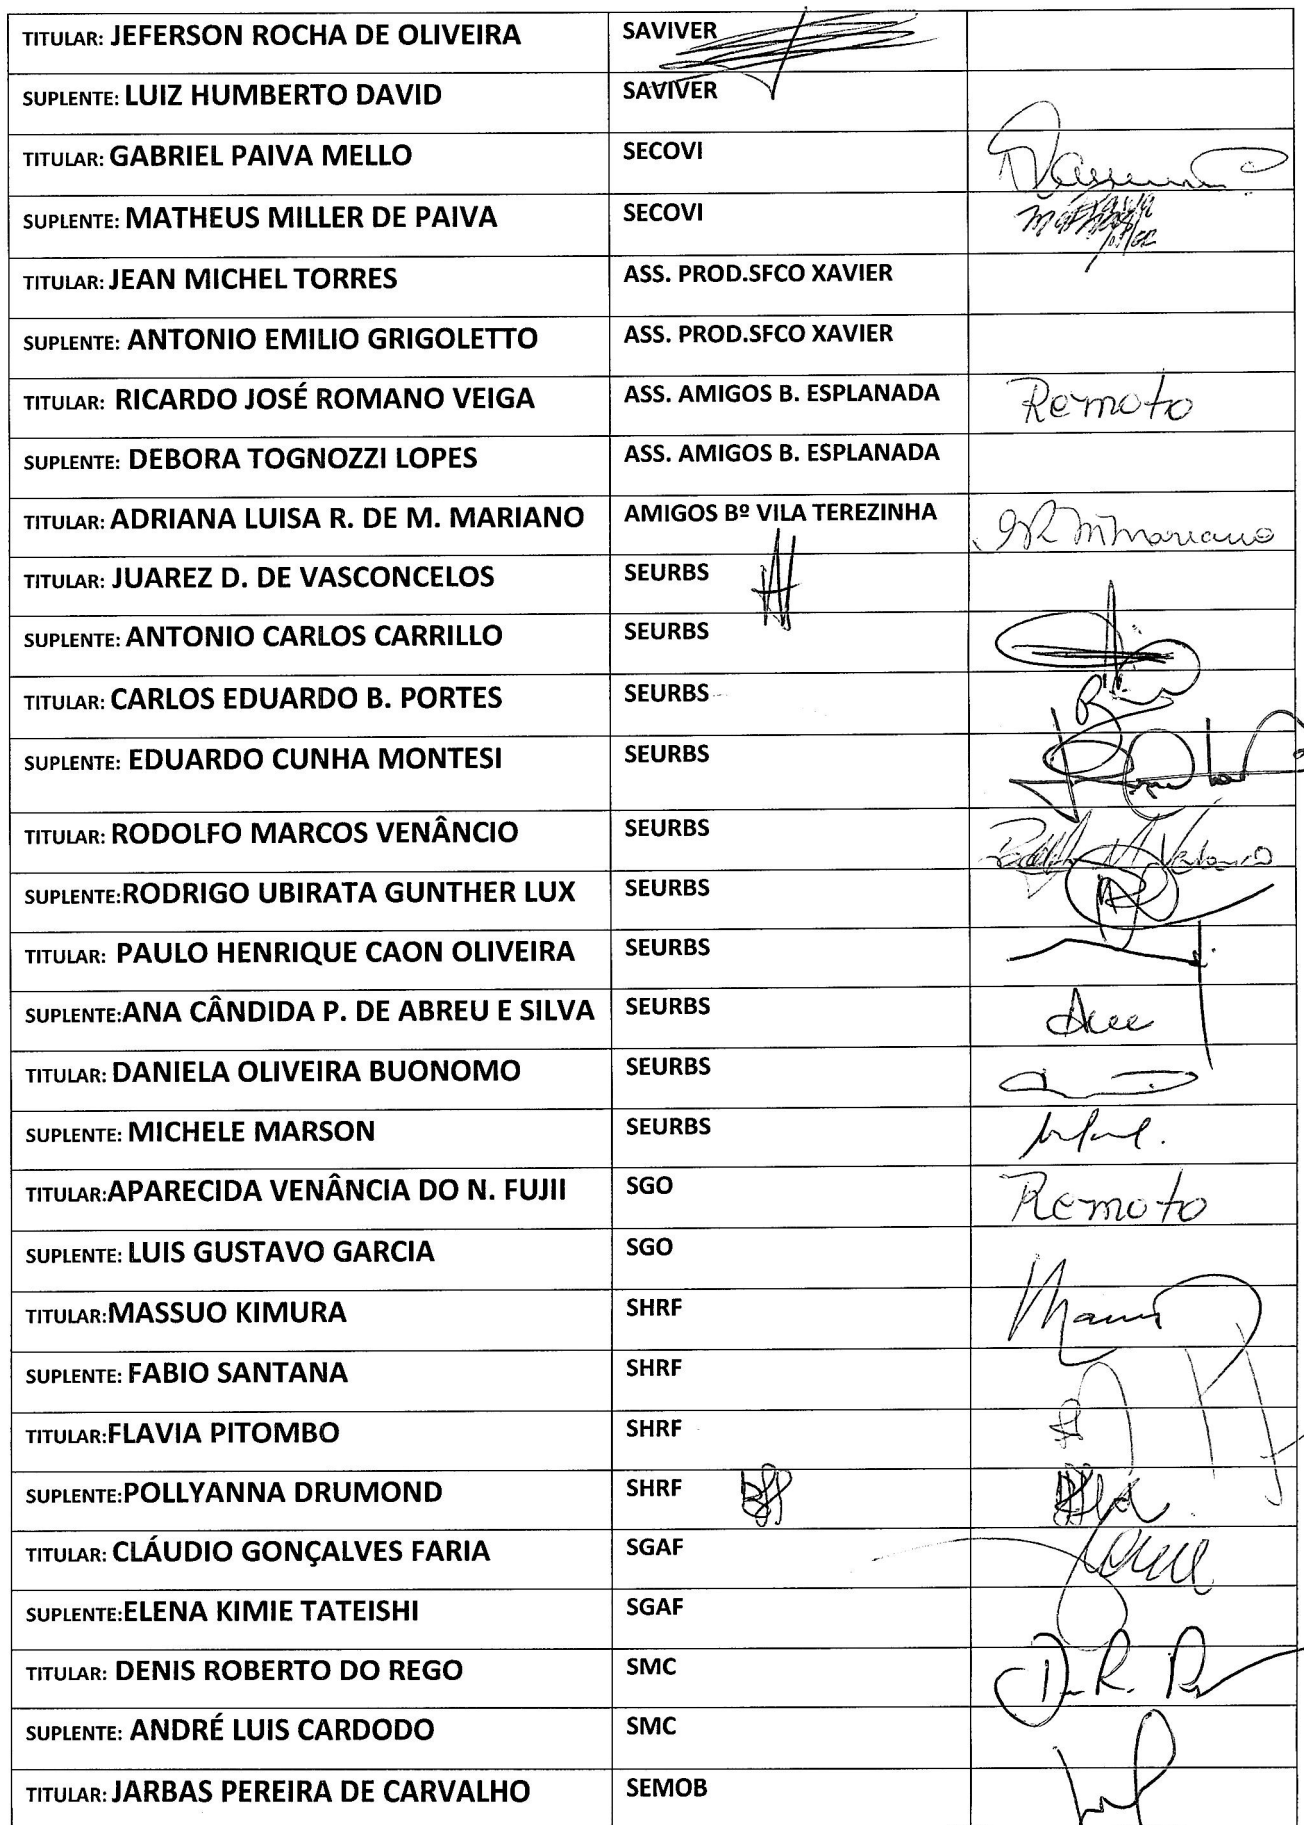 TITULAR: JEFERSON ROCHA DE OLIVEIRA SAVIVER
SUPLENTE: LUIZ HUMBERTO DAVID SAVIVER
TITULAR: GABRIEL PAIVA MELLO SECOVI
SUPLENTE: MATHEUS MILLER DE PAIVA SECOVI
TITULAR: JEAN MICHEL TORRES ASS. PROD.SFCO XAVIER
SUPLENTE: ANTONIO EMILIO GRIGOLETTO ASS. PROD.SFCO XAVIER
TITULAR: RICARDO JOSÉ ROMANO VEIGA ASS. AMIGOS B. ESPLANADA Remoto
SUPLENTE: DEBORA TOGNOZZI LOPES ASS. AMIGOS B. ESPLANADA
TITULAR: ADRIANA LUISA R. DE M. MARIANO AMIGOS Bº VILA TEREZINHA
TITULAR: JUAREZ D. DE VASCONCELOS SEURBS
SUPLENTE: ANTONIO CARLOS CARRILLO SEURBS
TITULAR: CARLOS EDUARDO B. PORTES SEURBS
SUPLENTE: EDUARDO CUNHA MONTESI SEURBS
TITULAR: RODOLFO MARCOS VENÂNCIO SEURBS
SUPLENTE:RODRIGO UBIRATA GUNTHER LUX SEURBS
TITULAR: PAULO HENRIQUE CAON OLIVEIRA SEURBS
SUPLENTE:ANA CÂNDIDA P. DE ABREU E SILVA SEURBS
TITULAR: DANIELA OLIVEIRA BUONOMO SEURBS
SUPLENTE: MICHELE MARSON SEURBS
TITULAR:APARECIDA VENÂNCIA DO N. FUJII SGO Remoto
SUPLENTE: LUIS GUSTAVO GARCIA SGO
TITULAR:MASSUO KIMURA SHRF
SUPLENTE: FABIO SANTANA SHRF
TITULAR:FLAVIA PITOMBO SHRF
SUPLENTE:POLLYANNA DRUMOND SHRF
TITULAR: CLÁUDIO GONÇALVES FARIA SGAF
SUPLENTE:ELENA KIMIE TATEISHI SGAF
TITULAR: DENIS ROBERTO DO REGO SMC
SUPLENTE: ANDRÉ LUIS CARDODO SMC
TITULAR: JARBAS PEREIRA DE CARVALHO SEMOB